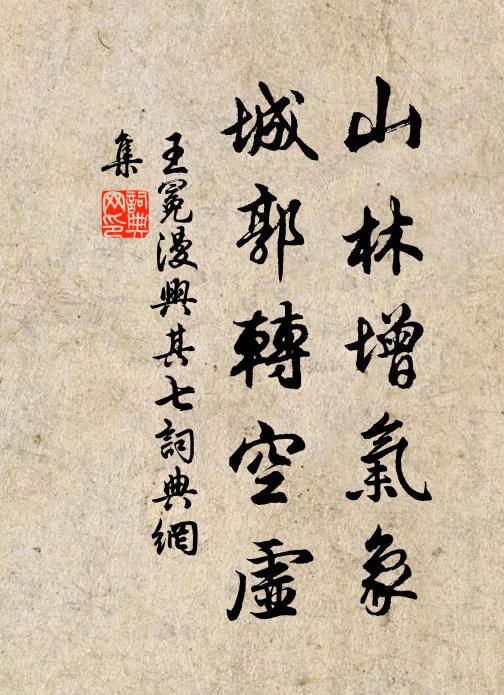 山林增氣象
城郭轉空虛
王冕漫興其七詞典網
集
詞典
网印